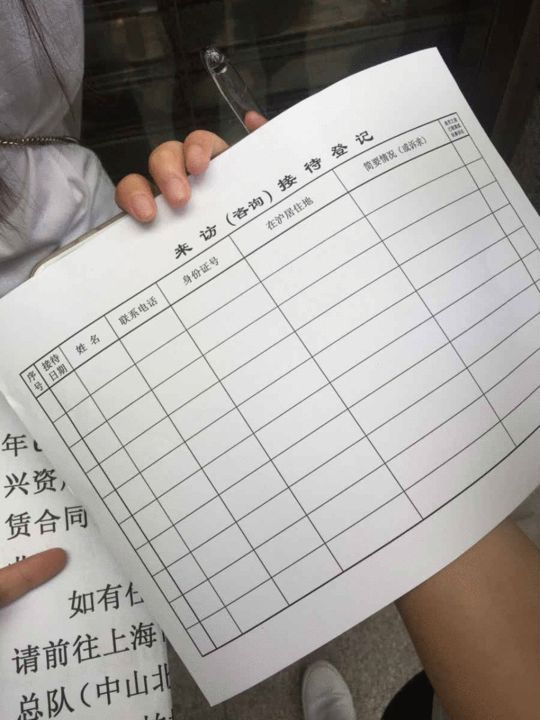 来访（咨询）接待登记
序号
接待日期
姓名
联系电话
身份证号
在沪居住地
简要情况（或诉求）
年
兴资
赁合同
如有
请前往上海
总队（中山北